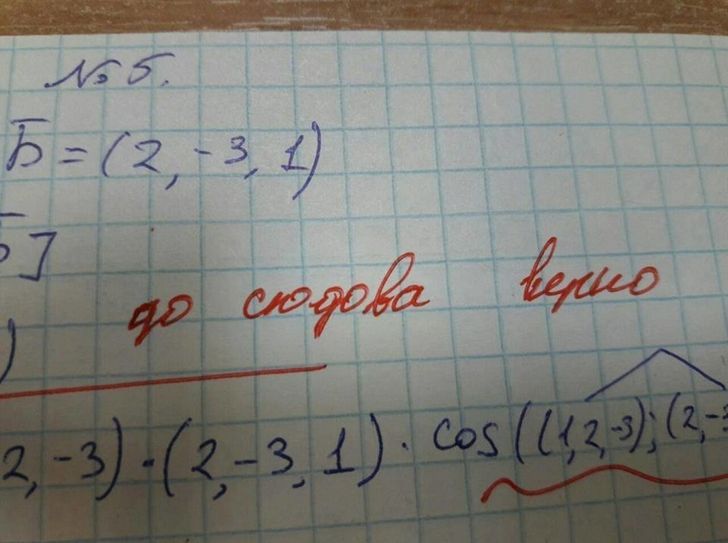 № 5.
Б̅ = (2, -3, 1)
Б̅]
до сюдова верно
)
2, -3) · (2, -3, 1) · cos((1, 2, -3); (2, -3